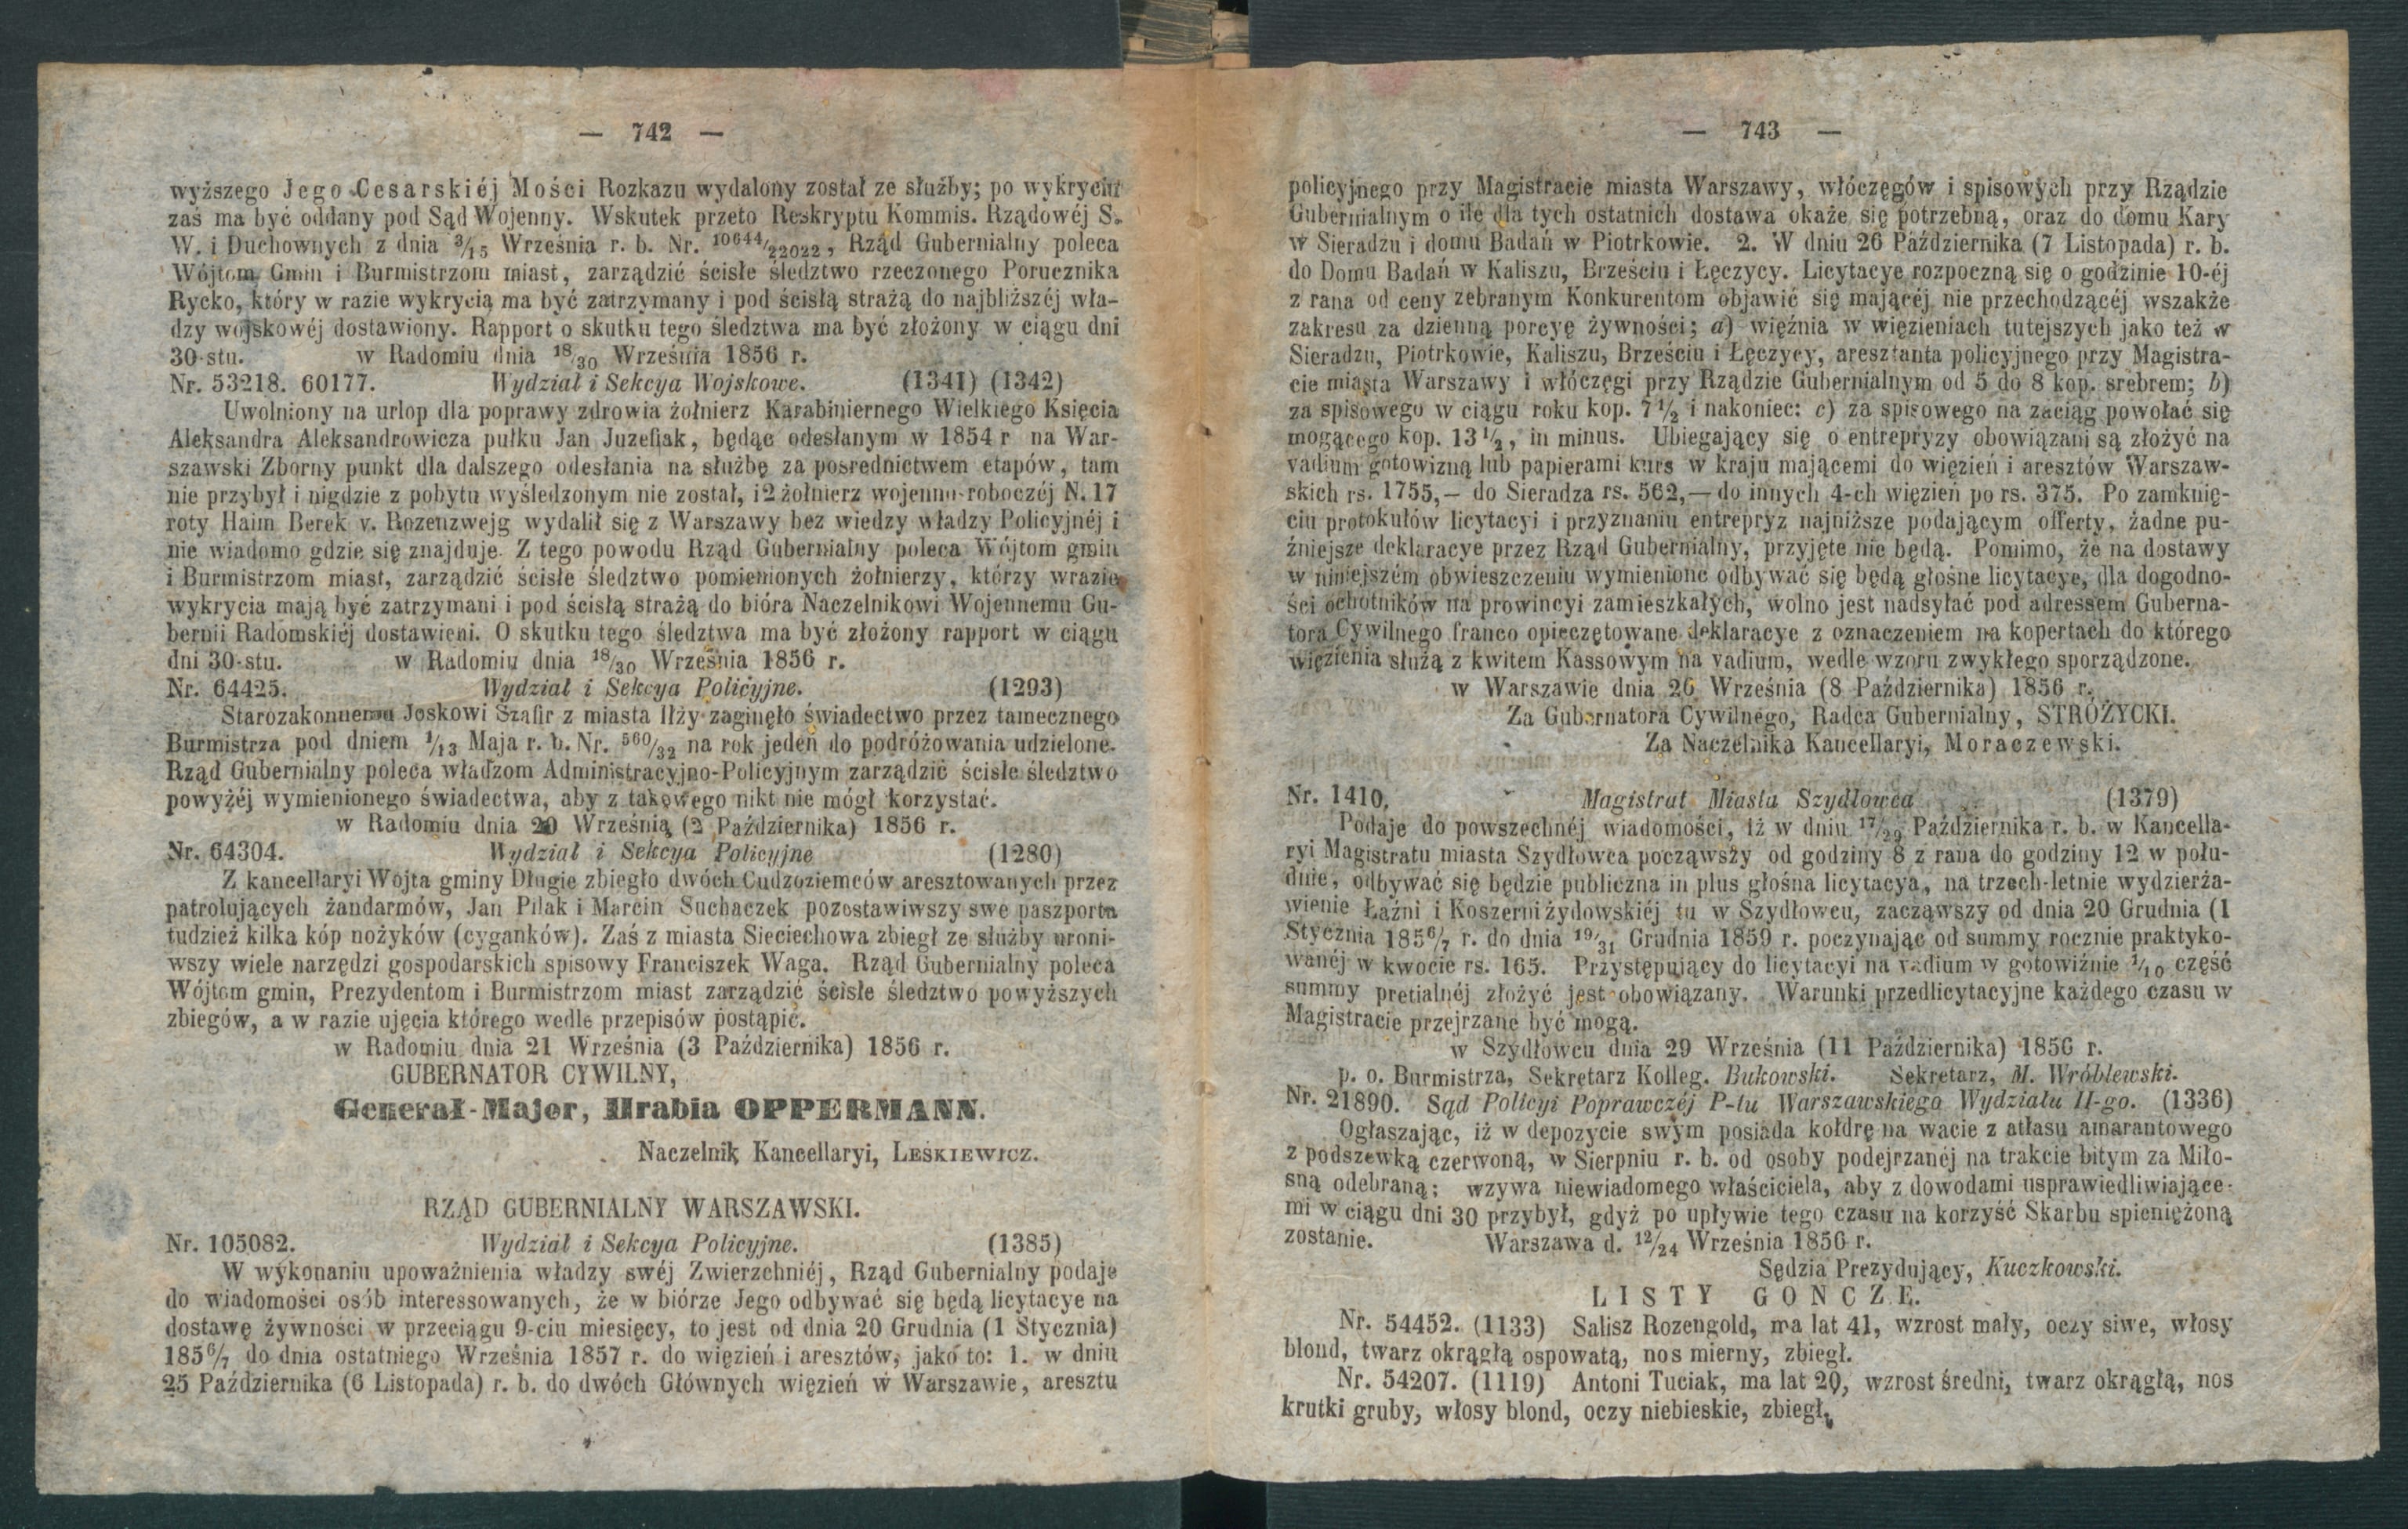 — 742 —
wyższego Jego Cesarskiéj Mości Rozkazu wydalony został ze służby; po wykryciu
zaś ma być oddany pod Sąd Wojenny. Wskutek przeto Reskryptu Kommis. Rządowéj S.
W. i Duchownych z dnia 3/15 Września r. b. Nr. 10644/22022, Rząd Gubernialny poleca
Wójtom Gmin i Burmistrzom miast, zarządzić ścisłe śledztwo rzeczonego Porucznika
Rycko, który w razie wykrycią ma być zatrzymany i pod ścisłą strażą do najbliższéj wła-
dzy wojskowéj dostawiony. Rapport o skutku tego śledztwa ma być złożony w ciągu dni
30-stu. w Radomiu dnia 18/30 Września 1856 r.
Nr. 53218. 60177. Wydział i Sekcya Wojskowe. (1341) (1342)
Uwolniony na urlop dla poprawy zdrowia żołnierz Karabiniernego Wielkiego Księcia
Aleksandra Aleksandrowicza pułku Jan Juzefjak, będąc odesłanym w 1854 r na War-
szawski Zborny punkt dla dalszego odesłania na służbę za pośrednictwem etapów, tam
nie przybył i nigdzie z pobytu wyśledzonym nie został, i 2 żołnierz wojenno-roboczéj N. 17
roty Haim Berek v. Rozenzwejg wydalił się z Warszawy bez wiedzy władzy Policyjnéj i
nie wiadomo gdzie się znajduje. Z tego powodu Rząd Gubernialny poleca Wójtom gmin
i Burmistrzom miast, zarządzić ścisłe śledztwo pomienionych żołnierzy, którzy wrazie
wykrycia mają być zatrzymani i pod ścisłą strażą do bióra Naczelnikowi Wojennemu Gu-
bernii Radomskiéj dostawieni. O skutku tego śledztwa ma być złożony rapport w ciągu
dni 30-stu. w Radomiu dnia 18/30 Września 1856 r.
Nr. 64425. Wydział i Sekcya Policyjne. (1293)
Starozakonnemu Joskowi Szafir z miasta Iłży zaginęło świadectwo przez tamecznego
Burmistrza pod dniem 1/13 Maja r. b. Nr. 560/32 na rok jeden do podróżowania udzielone.
Rząd Gubernialny poleca władzom Administracyjno-Policyjnym zarządzić ścisłe śledztwo
powyżéj wymienionego świadectwa, aby z takowego nikt nie mógł korzystać.
w Radomiu dnia 20 Wrześnią (2 Października) 1856 r.
Nr. 64304. Wydział i Sekcya Policyjne (1280)
Z kancellaryi Wójta gminy Długie zbiegło dwóch Cudzoziemców aresztowanych przez
patrolujących żandarmów, Jan Pilak i Marcin Suchaczek pozostawiwszy swe paszporta
tudzież kilka kóp nożyków (cyganków). Zaś z miasta Sieciechowa zbiegł ze służby uroni-
wszy wiele narzędzi gospodarskich spisowy Franciszek Waga. Rząd Gubernialny poleca
Wójtom gmin, Prezydentom i Burmistrzom miast zarządzić ścisłe śledztwo powyższych
zbiegów, a w razie ujęcia którego wedle przepisów postąpić.
w Radomiu dnia 21 Września (3 Października) 1856 r.
GUBERNATOR CYWILNY,
Generał-Major, Hrabia OPPERMANN.
Naczelnik Kancellaryi, LEŚKIEWICZ.
RZĄD GUBERNIALNY WARSZAWSKI.
Nr. 105082. Wydział i Sekcya Policyjne. (1385)
W wykonaniu upoważnienia władzy swéj Zwierzchniéj, Rząd Gubernialny podaje
do wiadomości osób interessowanych, że w biórze Jego odbywać się będą licytacye na
dostawę żywności w przeciągu 9-ciu miesięcy, to jest od dnia 20 Grudnia (1 Stycznia)
1856/7 do dnia ostatniego Września 1857 r. do więzień i aresztów, jako to: 1. w dniu
25 Października (6 Listopada) r. b. do dwóch Głównych więzień w Warszawie, aresztu
— 743 —
policyjnego przy Magistracie miasta Warszawy, włóczęgów i spisowych przy Rządzie
Gubernialnym o ile dla tych ostatnich dostawa okaże się potrzebną, oraz do domu Kary
w Sieradzu i domu Badań w Piotrkowie. 2. W dniu 26 Października (7 Listopada) r. b.
do Domu Badań w Kaliszu, Brześciu i Łęczycy. Licytacye rozpoczną się o godzinie 10-éj
z rana od ceny zebranym Konkurentom objawić się mającéj nie przechodzącéj wszakże
zakresu za dzienną porcyę żywności; a) więźnia w więzieniach tutejszych jako też w
Sieradzu, Piotrkowie, Kaliszu, Brześciu i Łęczycy, aresztanta policyjnego przy Magistra-
cie miasta Warszawy i włóczęgi przy Rządzie Gubernialnym od 5 do 8 kop. srebrem; b)
za spisowego w ciągu roku kop. 7 1/2 i nakoniec: c) za spisowego na zaciąg powołać się
mogącego kop. 13 1/2, in minus. Ubiegający się o entrepryzy obowiązani są złożyć na
vadium gotowizną lub papierami kurs w kraju mającemi do więzień i aresztów Warszaw-
skich rs. 1755,— do Sieradza rs. 562,— do innych 4-ch więzień po rs. 375. Po zamknię-
ciu protokułów licytacyi i przyznaniu entrepryz najniższe podającym offerty, żadne pu-
źniejsze deklaracye przez Rząd Gubernialny, przyjęte nie będą. Pomimo, że na dostawy
w niniejszém obwieszczeniu wymienione odbywać się będą głośne licytacye, dla dogodno-
ści ochotników na prowincyi zamieszkałych, wolno jest nadsyłać pod adressem Guberna-
tora Cywilnego franco opieczętowane deklaracye z oznaczeniem na kopertach do którego
więzienia służą z kwitem Kassowym na vadium, wedle wzoru zwykłego sporządzone.
w Warszawie dnia 26 Września (8 Października) 1856 r.
Za Gubernatora Cywilnego, Radca Gubernialny, STRÓŻYCKI.
Za Naczelnika Kancellaryi, Moraczewski.
Nr. 1410. Magistrat Miasta Szydłowca (1379)
Podaje do powszechnéj wiadomości, iż w dniu 17/29 Października r. b. w Kancella-
ryi Magistratu miasta Szydłowca począwszy od godziny 8 z rana do godziny 12 w połu-
dnie, odbywać się będzie publiczna in plus głośna licytacya, na trzech-letnie wydzierża-
wienie Łaźni i Koszerni żydowskiéj tu w Szydłowcu, zacząwszy od dnia 20 Grudnia (1
Stycznia 1856/7 r. do dnia 19/31 Grudnia 1859 r. poczynając od summy rocznie praktyko-
wanéj w kwocie rs. 165. Przystępujący do licytacyi na vadium w gotowiźnie 1/10 część
summy pretialnéj złożyć jest obowiązany. Warunki przedlicytacyjne każdego czasu w
Magistracie przejrzane być mogą.
w Szydłowcu dnia 29 Września (11 Października) 1856 r.
p. o. Burmistrza, Sekretarz Kolleg. Bukowski. Sekretarz, M. Wróblewski.
Nr. 21890. Sąd Policyi Poprawczéj P-tu Warszawskiego Wydziału II-go. (1336)
Ogłaszając, iż w depozycie swym posiada kołdrę na wacie z atłasu amarantowego
z podszewką czerwoną, w Sierpniu r. b. od osoby podejrzanéj na trakcie bitym za Miło-
sną odebraną; wzywa niewiadomego właściciela, aby z dowodami usprawiedliwiające-
mi w ciągu dni 30 przybył, gdyż po upływie tego czasu na korzyść Skarbu spieniężoną
zostanie. Warszawa d. 12/24 Września 1856 r.
Sędzia Prezydujący, Kuczkowski.
LISTY GOŃCZE.
Nr. 54452. (1133) Salisz Rozengold, ma lat 41, wzrost mały, oczy siwe, włosy
blond, twarz okrągłą ospowatą, nos mierny, zbiegł.
Nr. 54207. (1119) Antoni Tuciak, ma lat 20, wzrost średni, twarz okrągłą, nos
krutki gruby, włosy blond, oczy niebieskie, zbiegł.